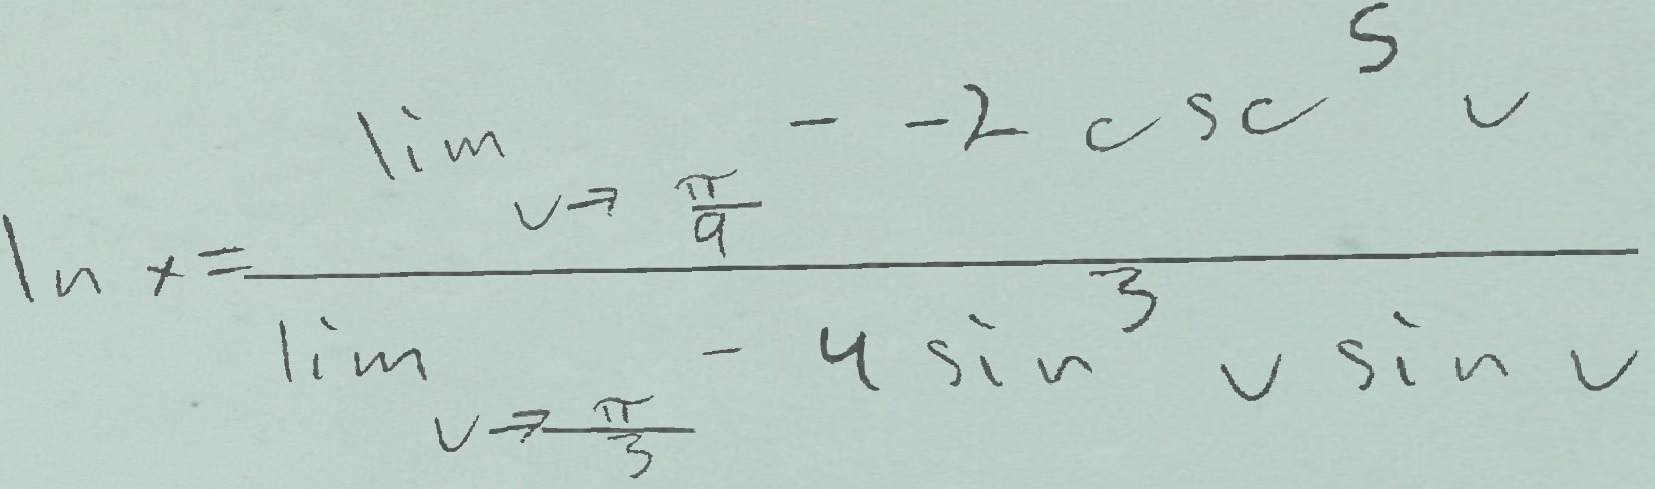 \ln x = \frac{\lim_{v \to \frac{\pi}{9}} - -2 \csc^5 v}{\lim_{v \to \frac{\pi}{3}} - 4 \sin^3 v \sin v}